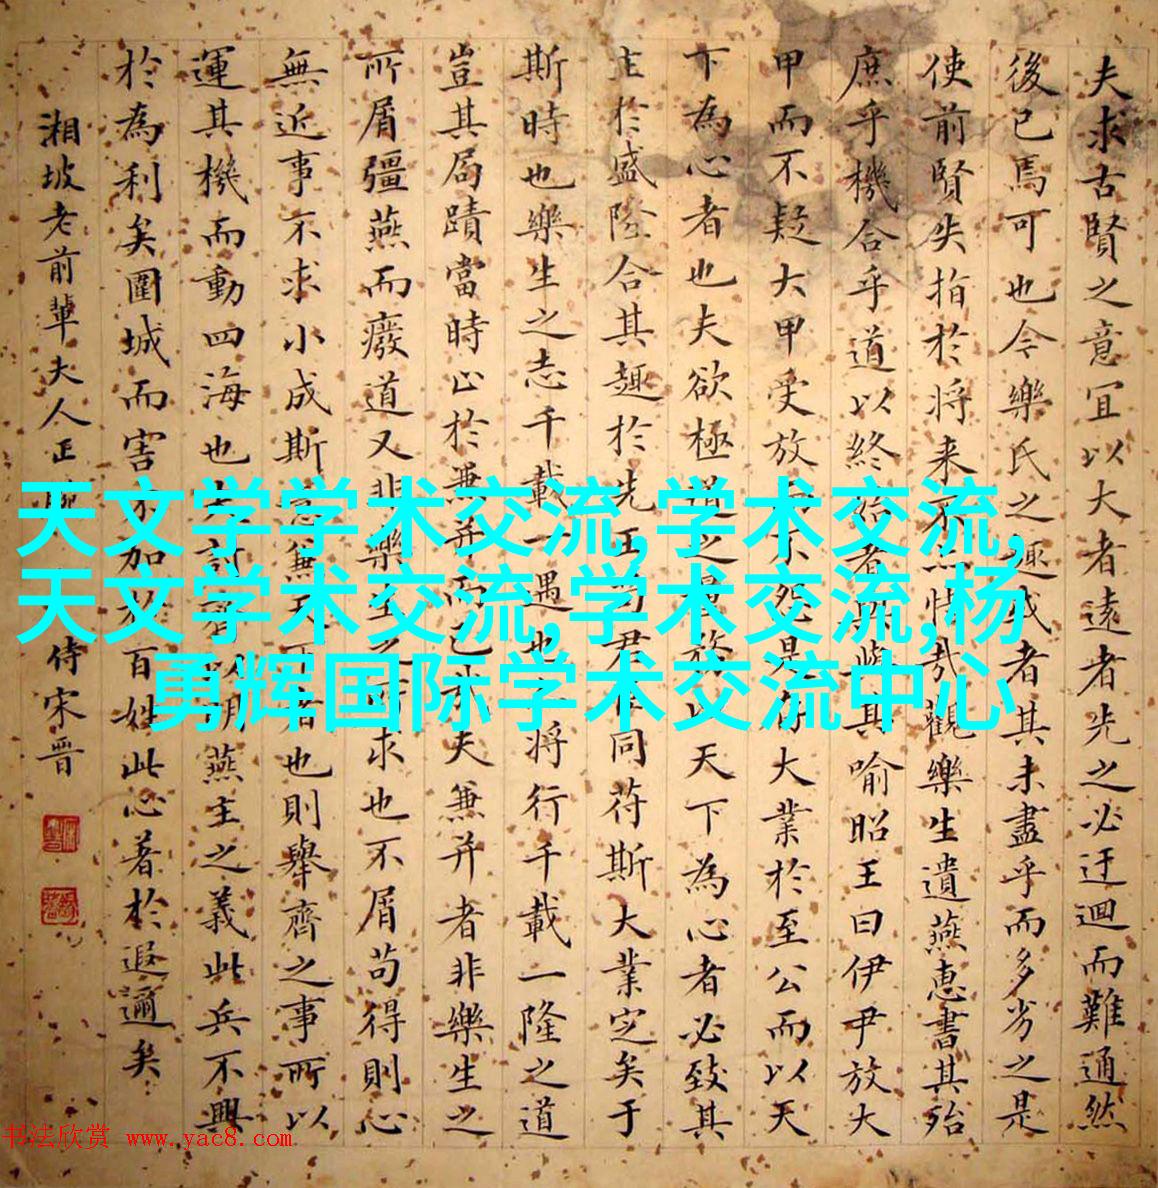 夫求古賢之意宜以大者遠者先之必迂迴而難通然
後已焉可也今樂氏之趣或者其未盡乎而多劣之是
使前賢失指於將来不亦惜哉觀樂生遺燕惠書其殆
庶乎機合乎道以終始者與其喻昭王曰伊尹放大
甲而不疑大甲受放而不怨是存大業於至公而以天
下為心者也夫欲極道之量務以天下為心者必致其
主於盛隆合其趣於先王苟君臣同苻斯大業定矣于
斯時也樂生之志千載一遇也亦將行千載一隆之道
豈其局蹟當時止於兼并而已哉夫兼并者非樂生之
所屑彊燕而廢道又非樂生之所求也不屑苟得則心
無近事不求小成斯意兼天下者也則舉齊之事所以
運其機而動四海也夫討齊以明燕主之義此兵不興
於為利矣圍城而害不加於百姓此心著於遐邇矣
湘坡老前輩夫人正
侍宋晋
天文学学术交流,学术交流,
天文学术交流,学术交流,杨
勇辉国际学术交流中心
书法欣赏 www.yac8.com